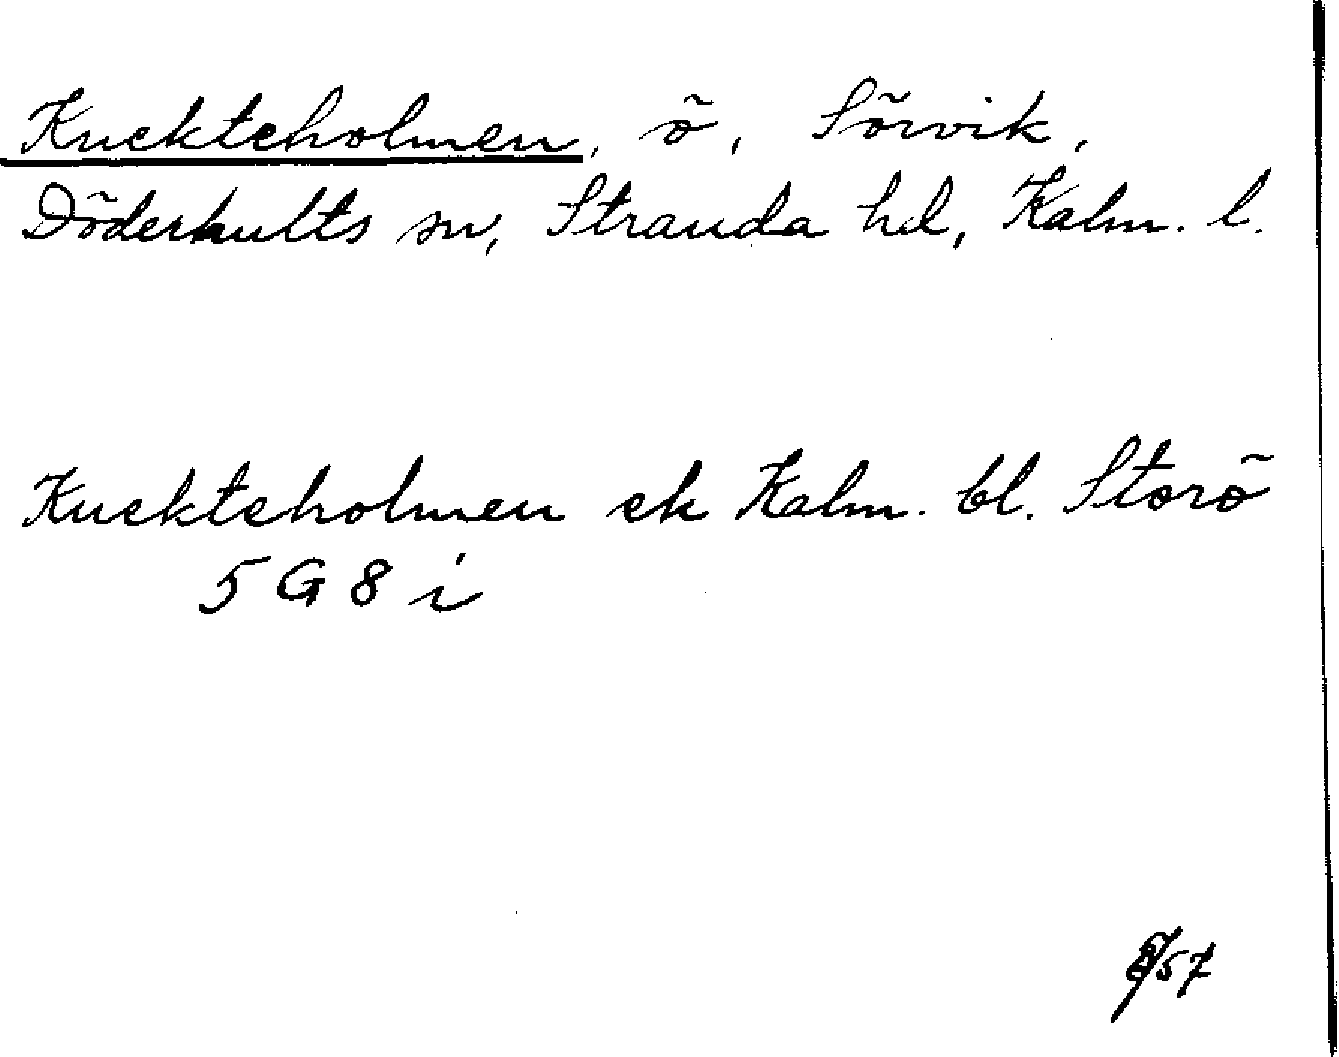 Knekteholmen, ö, Sörvik,
Döderhults sn, Stranda hd, Kalm. l.
Knekteholmen ek Kalm. bl. Storö
5 G 8 i